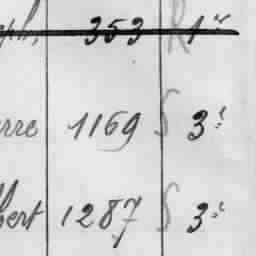 353 1er
erre 1169 S 3e
bert 1287 S 3e